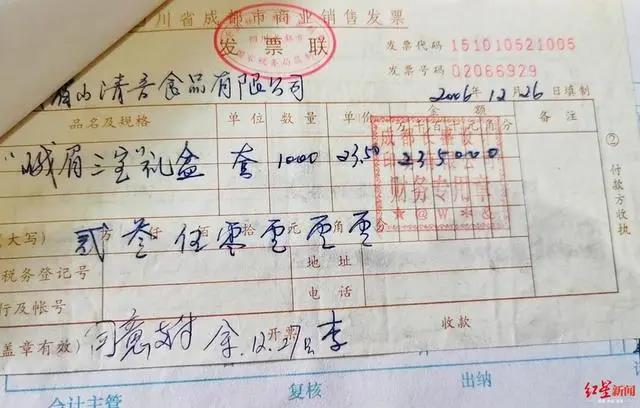 川省成都市商业销售发票
发票联
发票代码 151010521005
发票号码 02066929
眉山清音食品有限公司
2006年12月26日填制
品名及规格 单位 数量 单价 金额 备注
万千百十元角分
"峨眉三宝"礼盒 套 1000 23.50 2350000
财务专用章
大写) 贰万叁仟伍百零拾零元零角零分
税务登记号 地址
行及帐号 电话
盖章有效) 开票 收款
同意支付 余.12.27日 李
②付款方收执
会计主管 复核 出纳
红星新闻